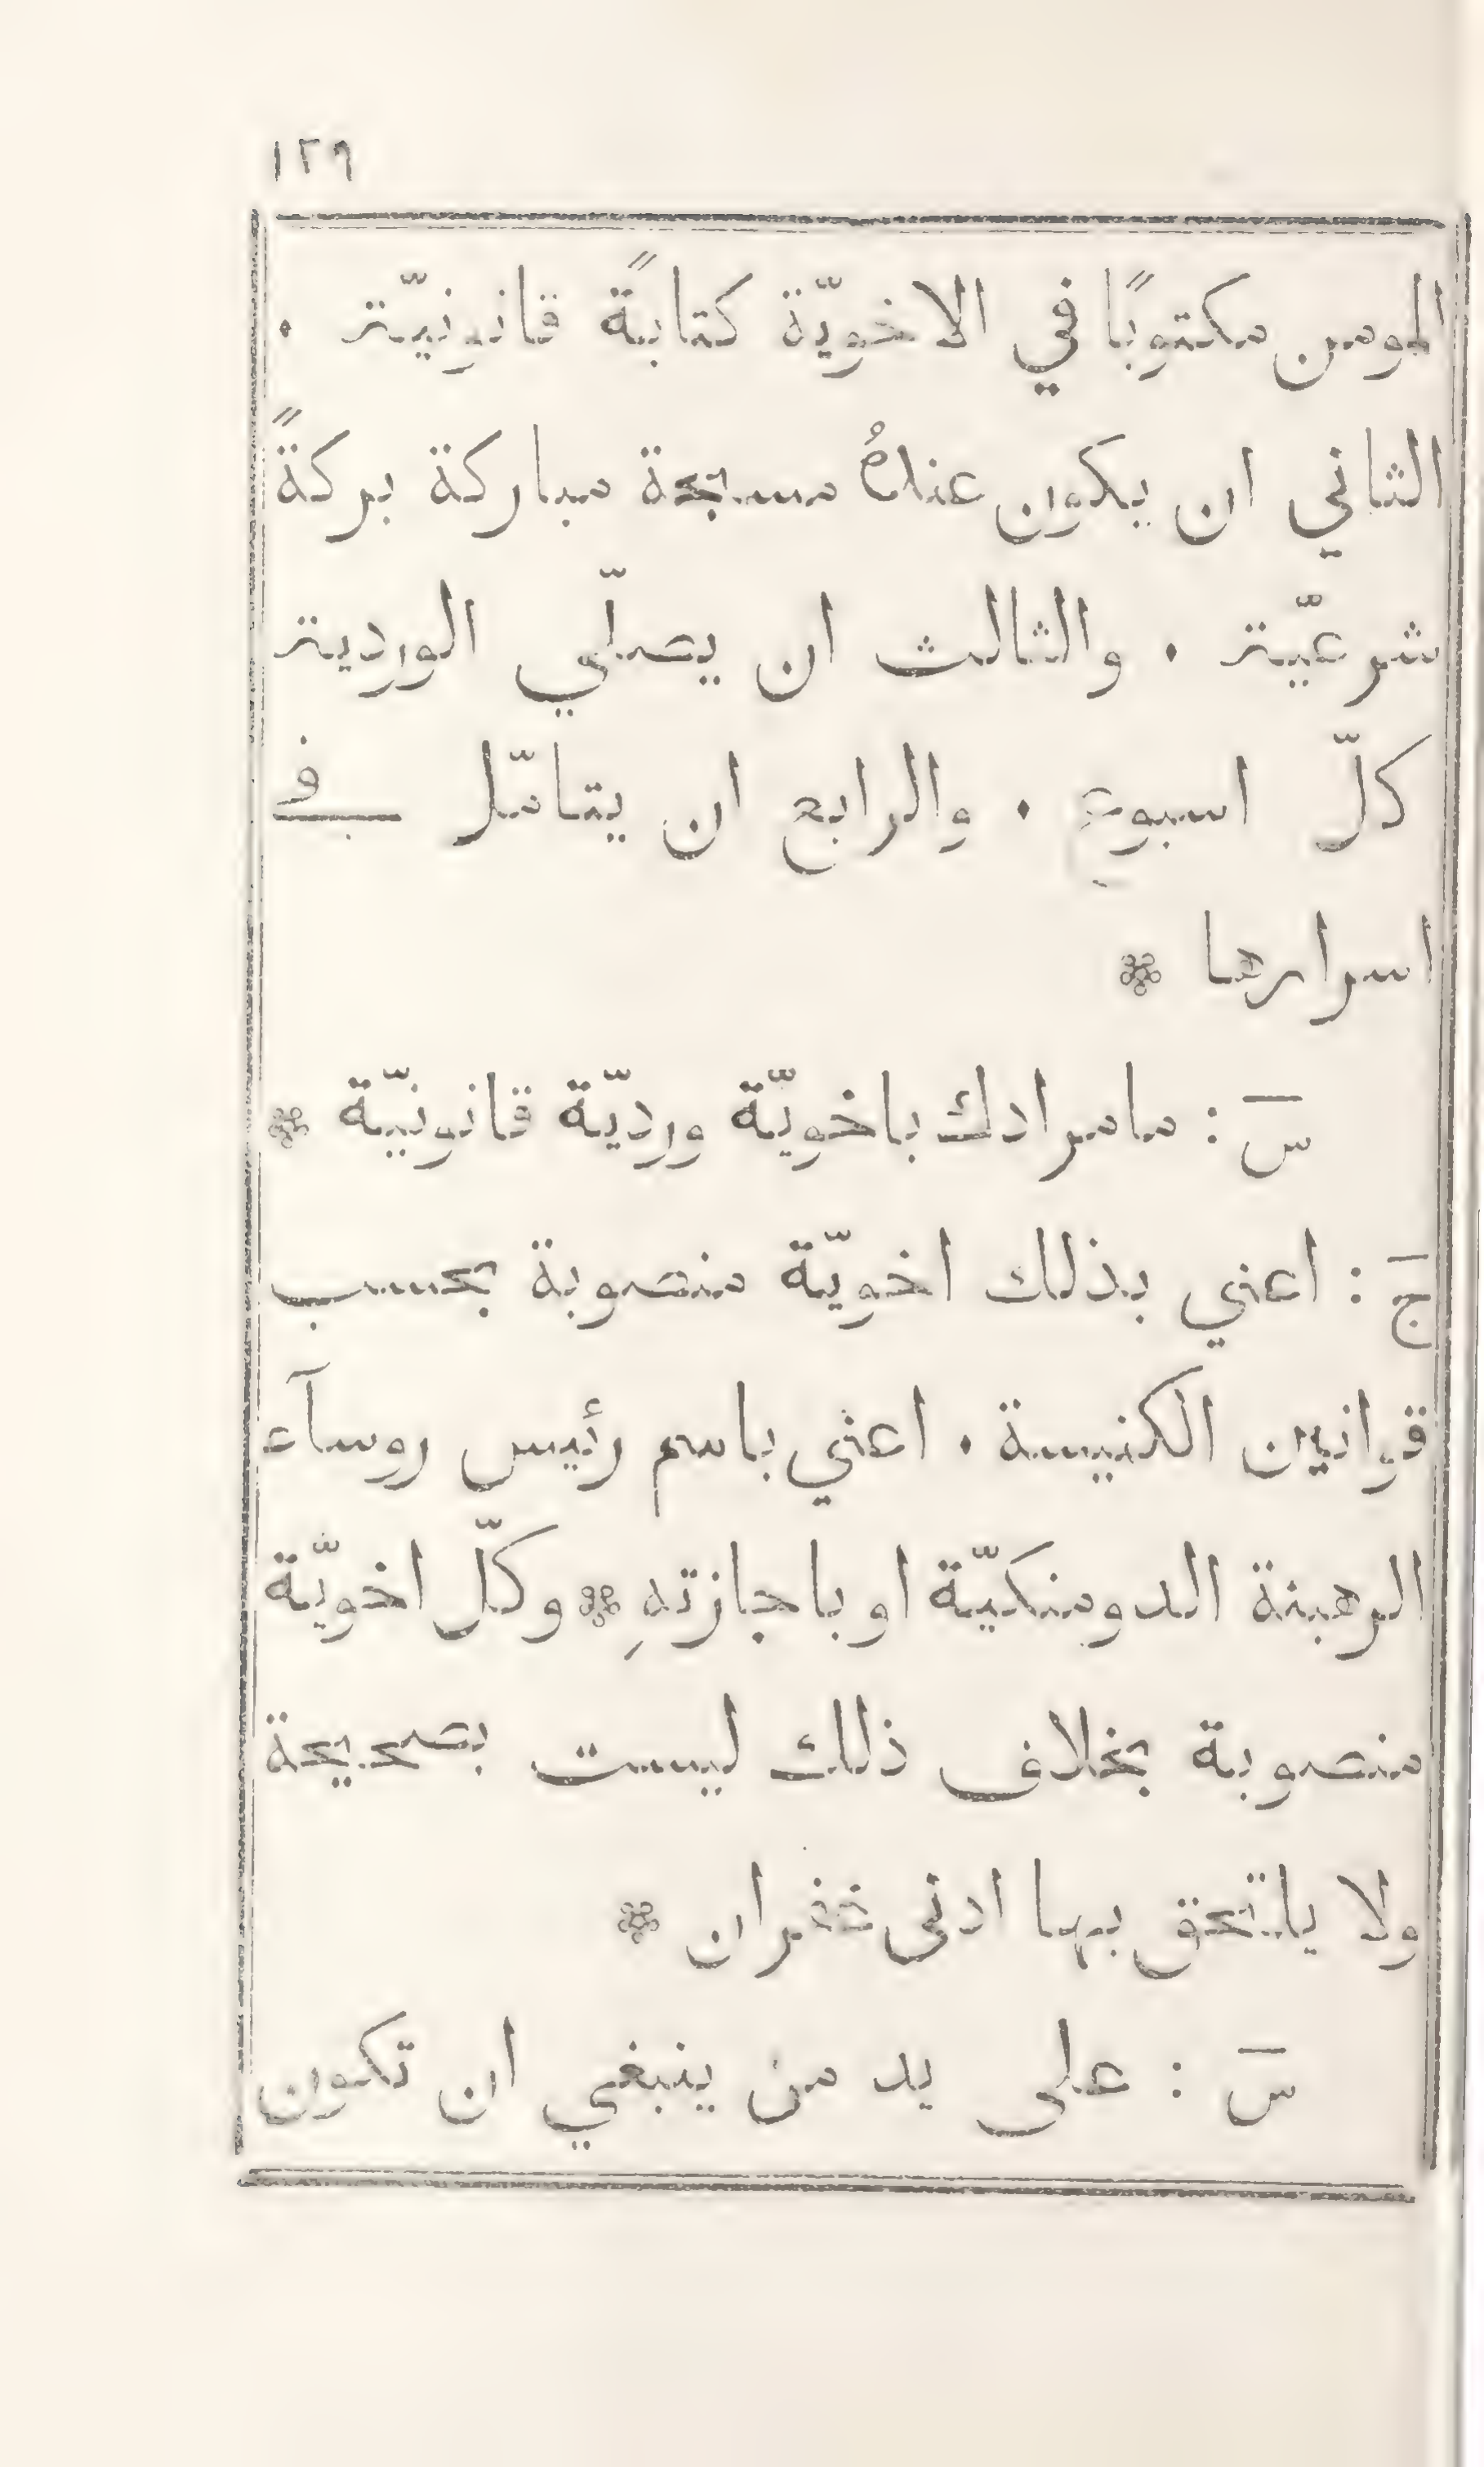 ١٢٩
المومن مكتوبًا في الاخويّة كتابةً قانونيّة .
الثاني ان يكون عندهُ مسبحة مباركة بركةً
شرعيّة . والثالث ان يصلّي الوردية
كلّ اسبوع . والرابع ان يتامّل في
اسرارها ❊
سَ : ما مرادك باخويّة ورديّة قانونيّة ❊
جَ : اعني بذلك اخويّة منصوبة بحسب
قوانين الكنيسة . اعني باسم رئيس روسآء
الرهبنة الدومنكيّة او باجازتهِ ❊ وكلّ اخويّة
منصوبة بخلاف ذلك ليست بصحيحة
ولا يلتحق بها ادنى غفران ❊
سَ : على يد من ينبغي ان تكون